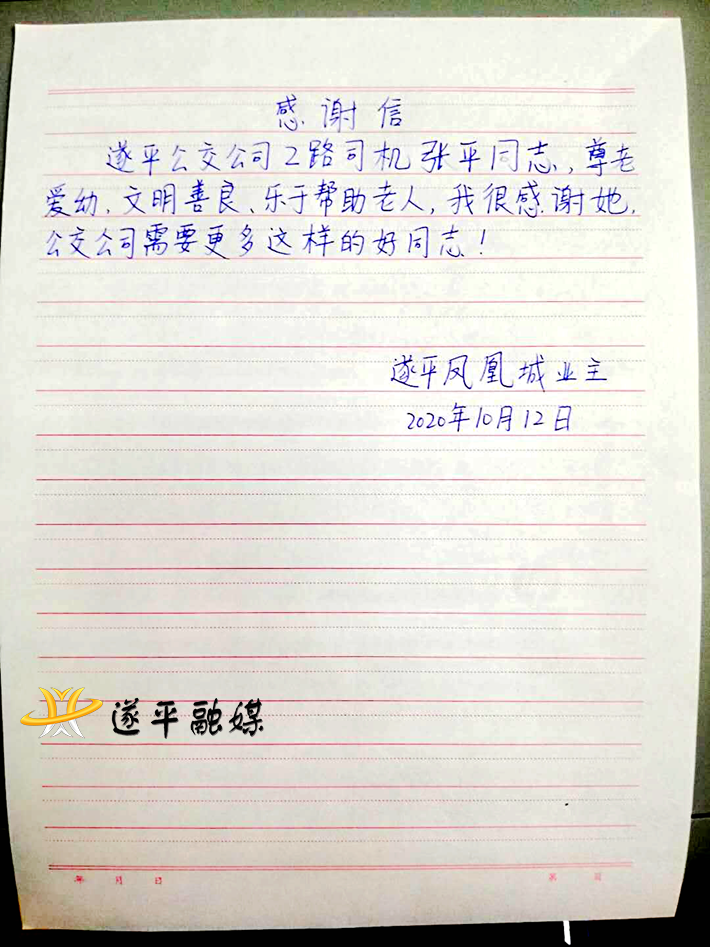 感谢信
遂平公交公司2路司机张平同志,尊老
爱幼、文明善良、乐于帮助老人,我很感谢她,
公交公司需要更多这样的好同志!
遂平凤凰城业主
2020年10月12日
遂平融媒
年 月 日
第 页